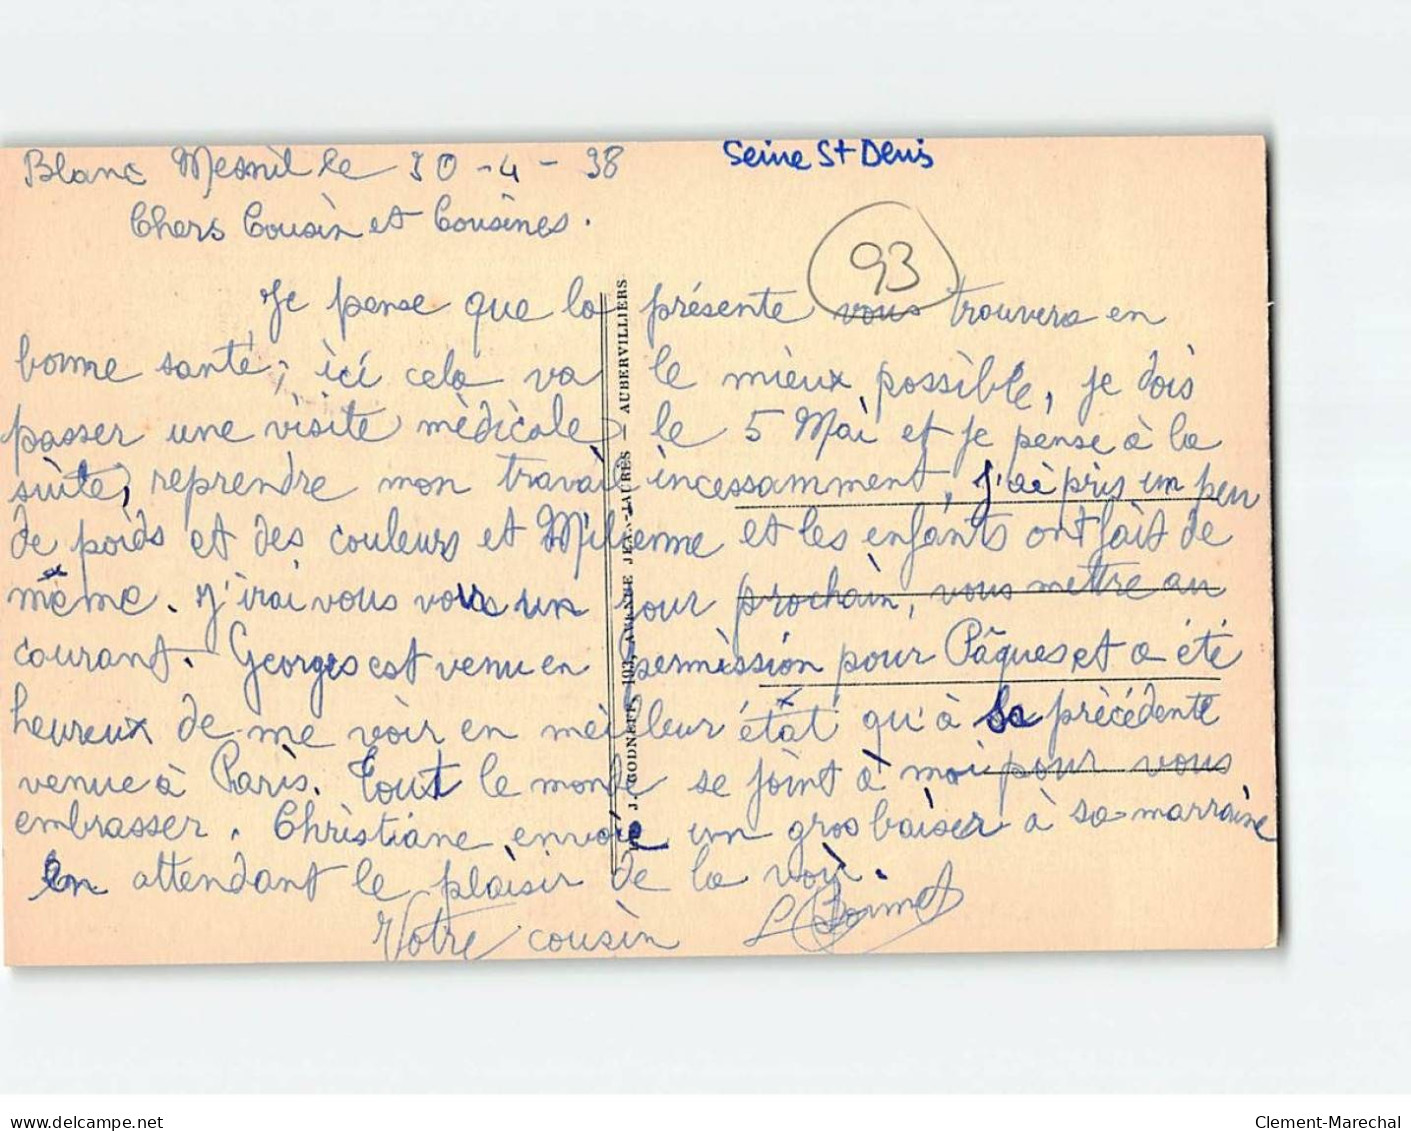 Blanc Mesnil le 30-4-38
Seine St Denis
Chers Cousin et Cousines.
93
Je pense que la présente vous trouvera en
bonne santé, ici cela va le mieux possible, je dois
passer une visite médicale le 5 Mai et je pense à la
suite, reprendre mon travail incessamment, j'ai pris un peu
de poids et des couleurs et Milienne et les enfants ont fait de
même. J'irai vous voir un jour prochain, vous mettre au
courant. Georges est venu en permission pour Pâques et a été
heureux de me voir en meilleur état qu'à sa précédente
venue à Paris. Tout le monde se joint à moi pour vous
embrasser. Christiane envoie un gros baiser à sa marraine
En attendant le plaisir de la voir.
Votre cousin
AVENUE JEAN-JAURÈS — AUBERVILLIERS
delcampe.net
Clement-Marechal